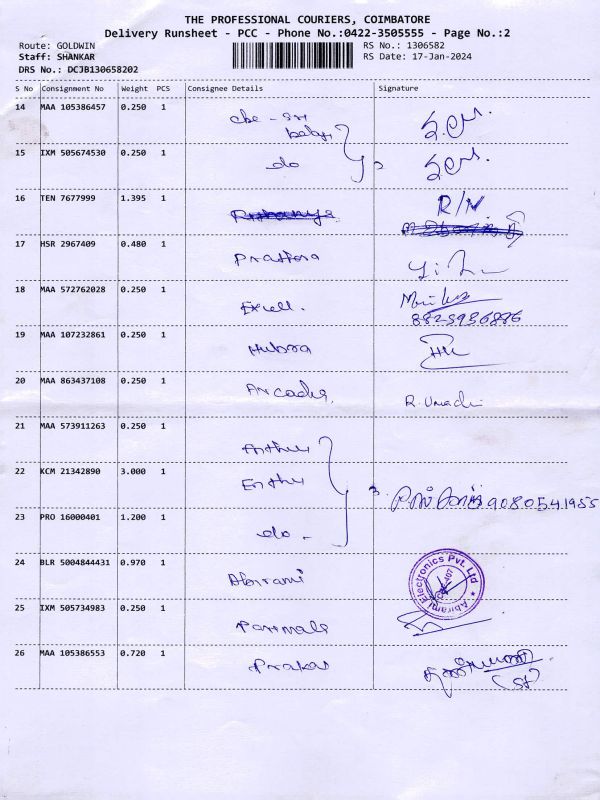 THE PROFESSIONAL COURIERS, COIMBATORE
Delivery Runsheet - PCC - Phone No.:0422-3505555 - Page No.:2
Route: GOLDWIN RS No.: 1306582
Staff: SHANKAR RS Date: 17-Jan-2024
DRS No.: DCJB130658202
S No Consignment No Weight PCS Consignee Details Signature
14 MAA 105386457 0.250 1
15 IXM 505674530 0.250 1 do
16 TEN 7677999 1.395 1 R/N
17 HSR 2967409 0.480 1
18 MAA 572762028 0.250 1 Excell.
8825936886
19 MAA 107232861 0.250 1 Hubra
20 MAA 863437108 0.250 1 R. Umadi
21 MAA 573911263 0.250 1
22 KCM 21342890 3.000 1 Enthu
9080541955
23 PRO 16000401 1.200 1 do -
24 BLR 5004844431 0.970 1 Abirami Abirami Electronics Pvt. Ltd
25 IXM 505734983 0.250 1
26 MAA 105386553 0.720 1 Prakas